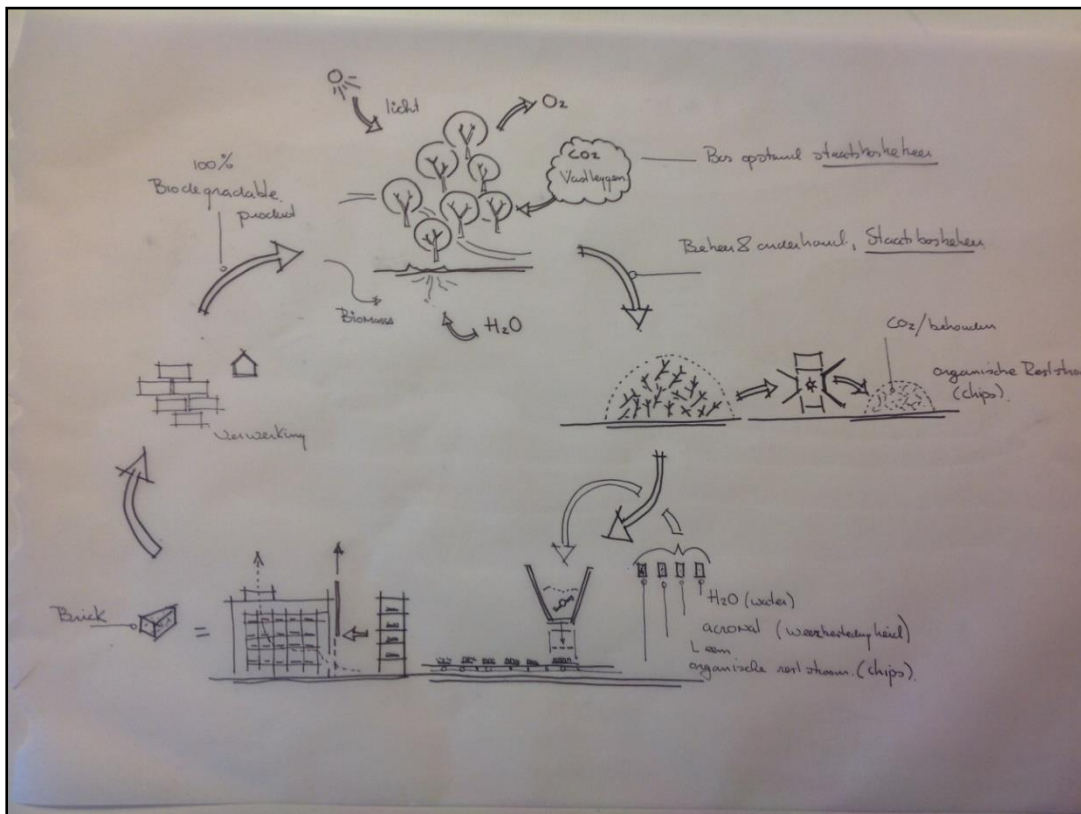 licht
O2
CO2
Vastleggen
Bos opstand staatsbosbeheer
100%
Biodegradable
product
Beheer & onderhoud, Staatsbosbeheer
Biomassa
H2O
CO2/behouden
organische Reststroom
(chips)
verwerking
Brick
=
H2O (water)
acronal (weerbestendigheid)
Leem
organische reststroom (chips)